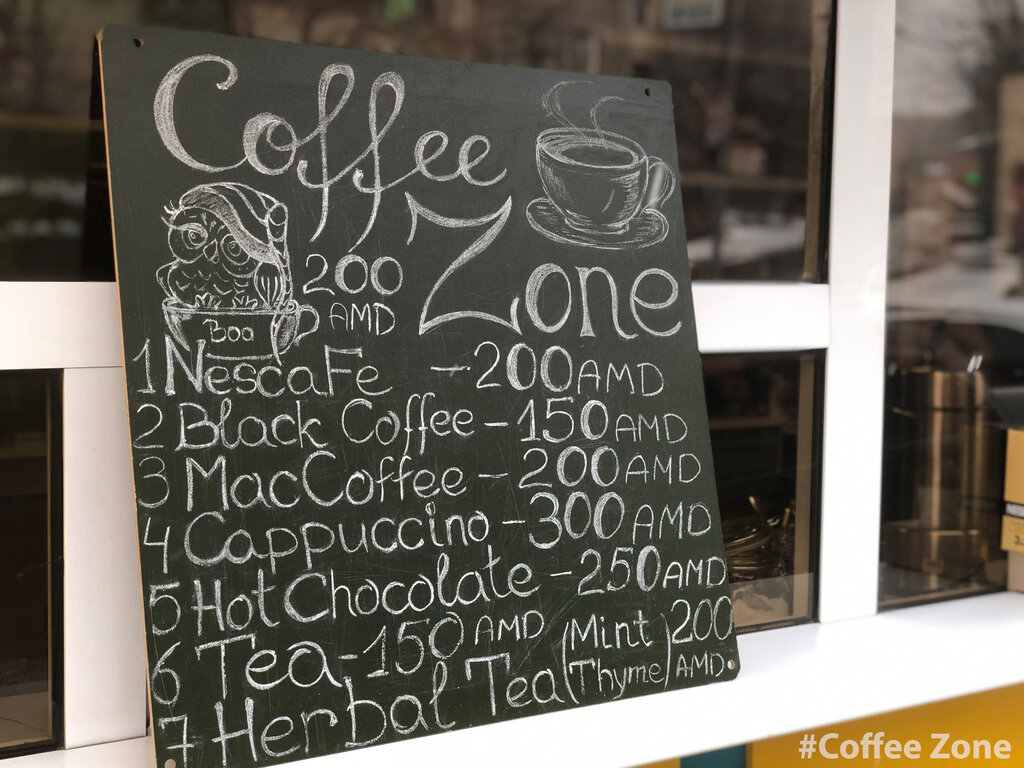 Coffee
Zone
200
AMD
Boo
1 NescaFe - 200 AMD
2 Black Coffee - 150 AMD
3 MacCoffee - 200 AMD
4 Cappuccino - 300 AMD
5 Hot Chocolate - 250 AMD
6 Tea - 150 AMD
7 Herbal Tea (Mint Thyme) 200 AMD
#Coffee Zone